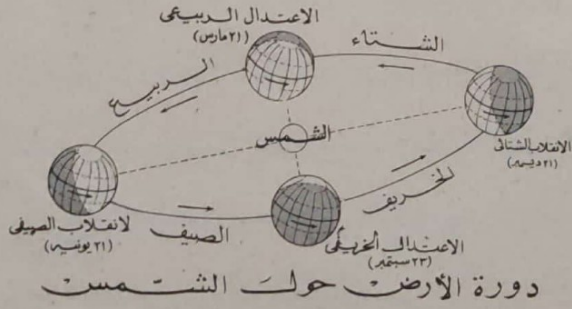 الاعتدال الربيعى
(٢١ مارس)
الشتاء
الربيع
الشمس
الانقلاب الشتائى
(٢١ ديسمبر)
الخريف
لانقلاب الصيفى
(٢١ يونيه)
الصيف
الاعتدال الخريفى
(٢٣ سبتمبر)
دورة الأرض حول الشمس